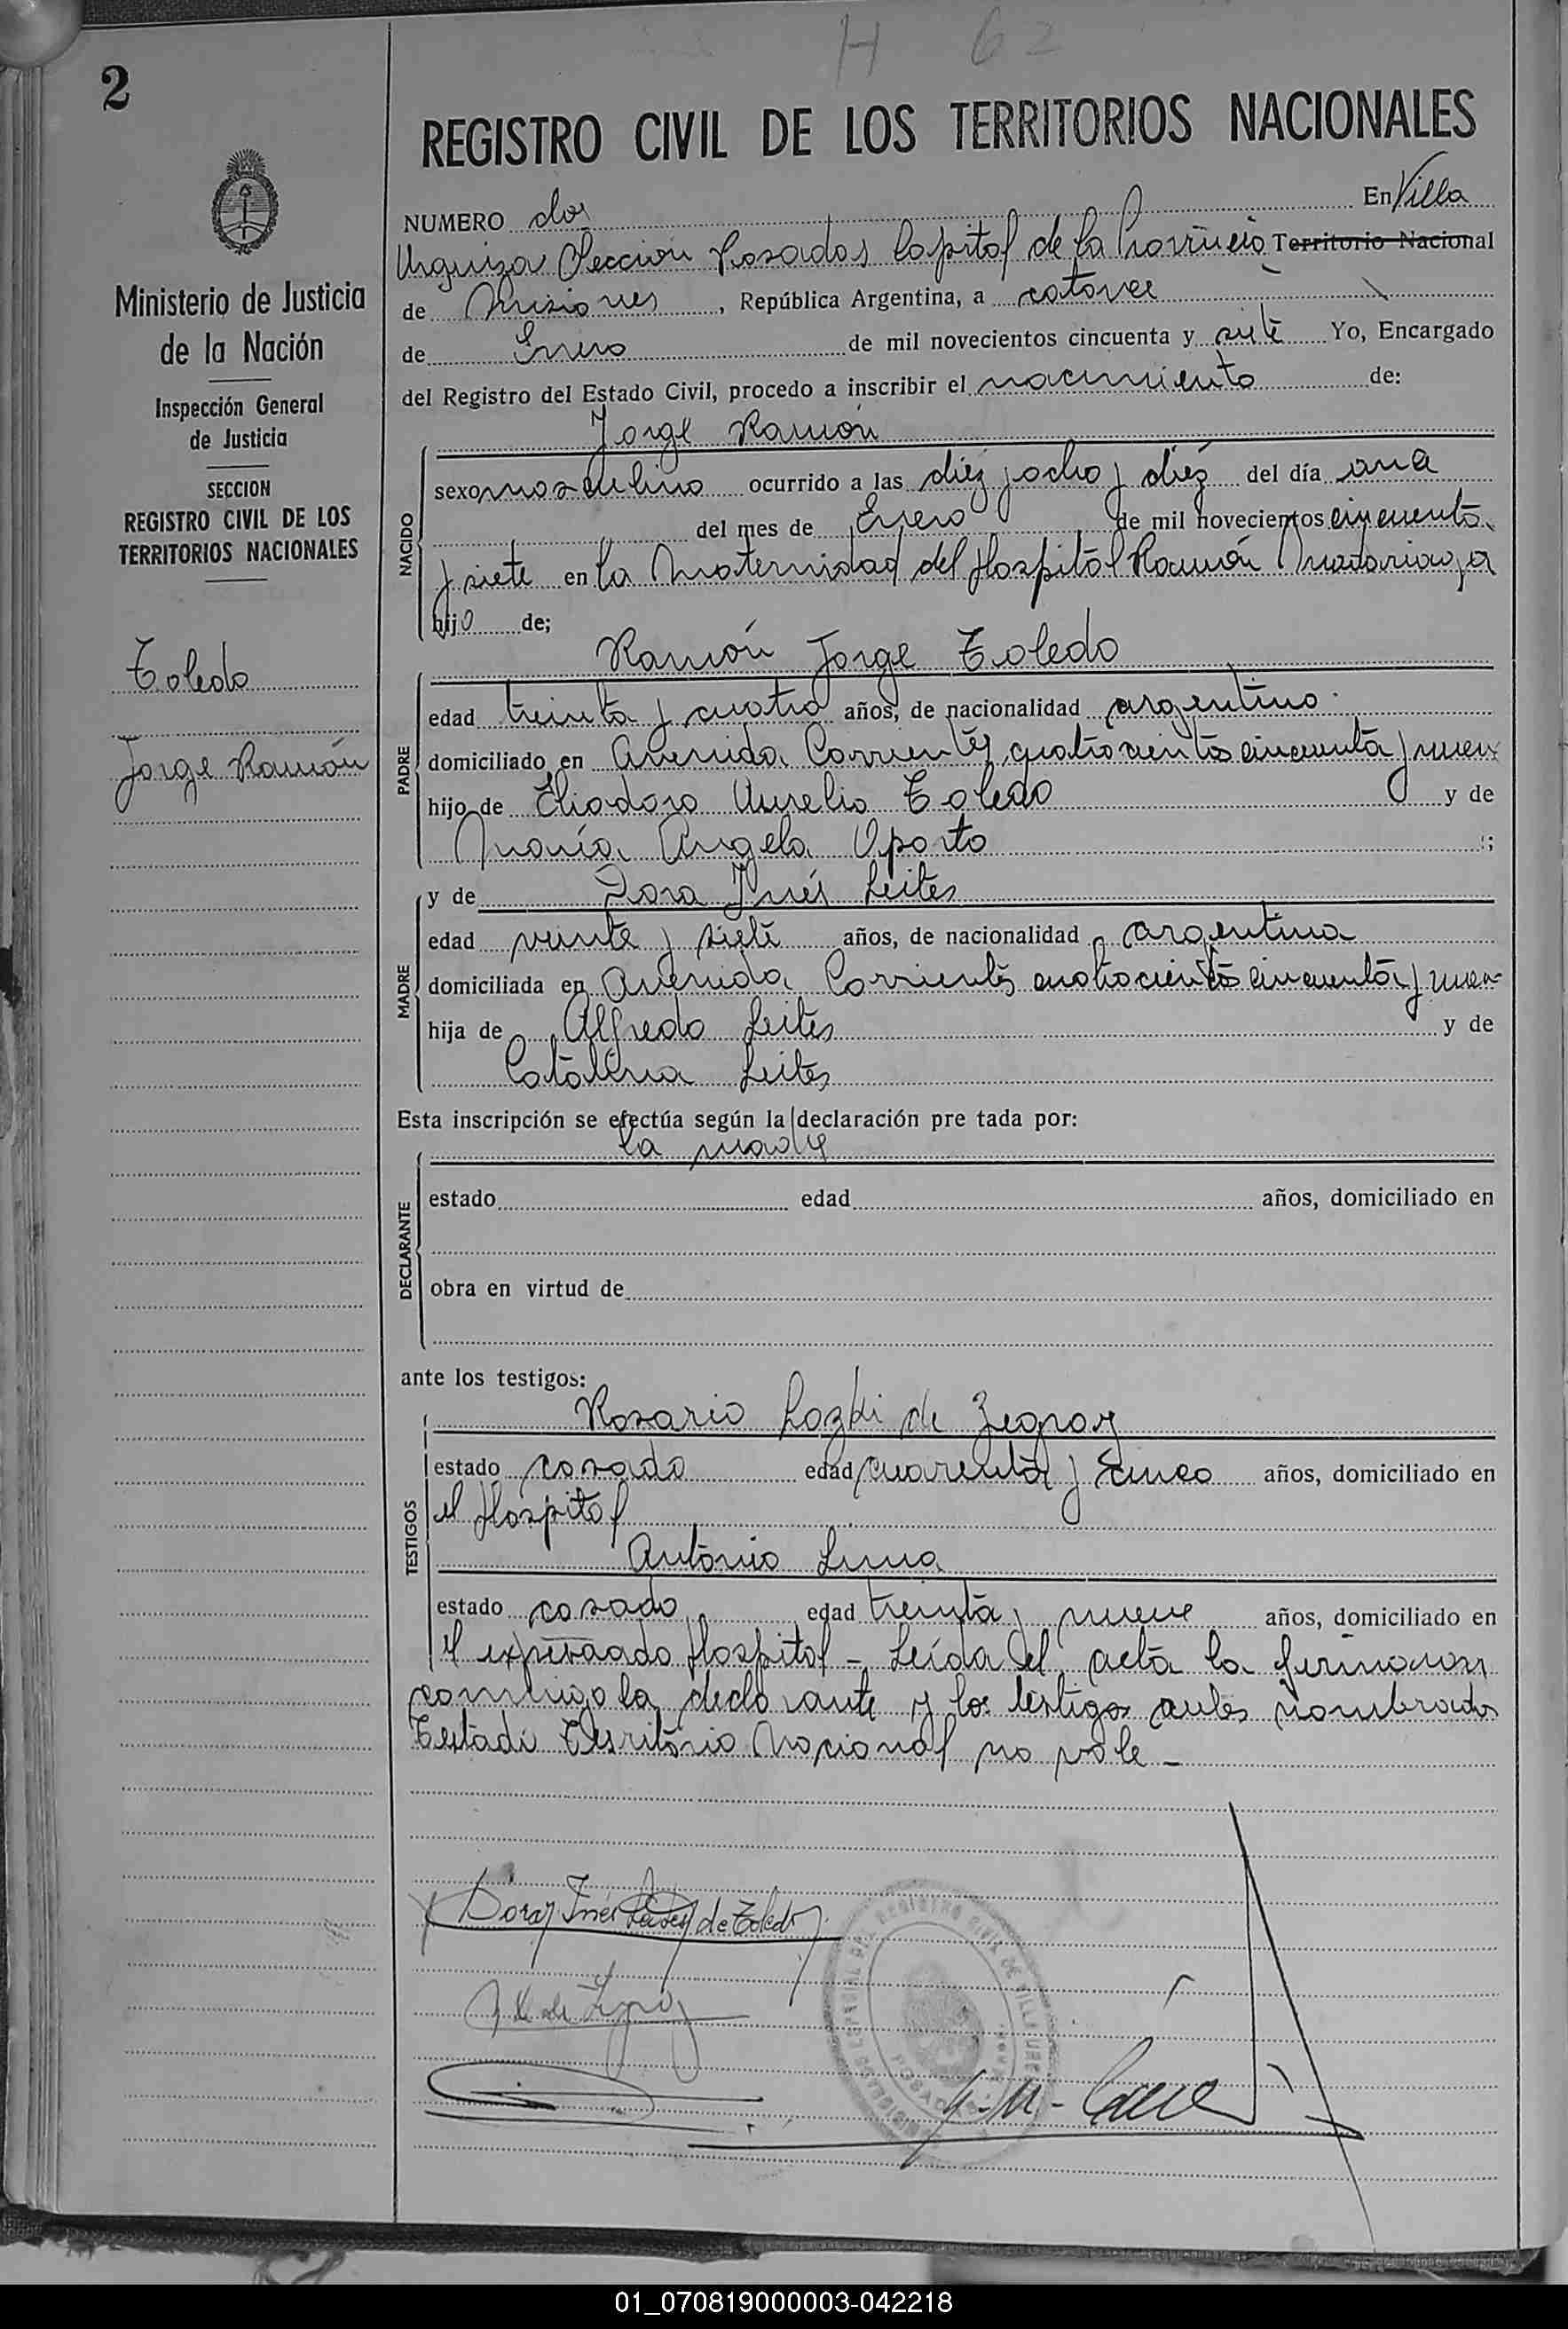 H 62
2
REGISTRO CIVIL DE LOS TERRITORIOS NACIONALES
NUMERO dos En Villa
Urquiza Sección Posadas Capital de la Provincia Territorio Nacional
de Misiones, República Argentina, a catorce
de Enero de mil novecientos cincuenta y siete Yo, Encargado
del Registro del Estado Civil, procedo a inscribir el nacimiento de:
Jorge Ramón
NACIDO
sexo masculino ocurrido a las diez y ocho y diez del día
del mes de Enero de mil novecientos cincuenta
y siete en la Maternidad del Hospital Ramón Madariaga
hijo de;
Ramón Jorge Toledo
PADRE
edad treinta y cuatro años, de nacionalidad argentino.
domiciliado en Avenida Corrientes cuatrocientos cincuenta y nueve
hijo de Eliodoro Aurelio Toledo y de
María Angela Oporto ;
MADRE
y de Dora Inés Leites
edad veinte y siete años, de nacionalidad argentina
domiciliada en Avenida Corrientes cuatrocientos cincuenta y nueve
hija de Alfredo Leites y de
Catalina Leites
Esta inscripción se efectúa según la declaración pre tada por:
la madre
DECLARANTE
estado edad años, domiciliado en
obra en virtud de
ante los testigos:
Rosario de
TESTIGOS
estado casado edad cuarenta y cinco años, domiciliado en
el Hospital
Antonio Luna
estado casado edad treinta y nueve años, domiciliado en
el expresado Hospital - Leída el acta la firmaron
conmigo la declarante y los testigos antes nombrados
Testado Territorio Nacional no vale -
Dora Inés Leites de Toledo
Ministerio de Justicia
de la Nación
Inspección General
de Justicia
SECCION
REGISTRO CIVIL DE LOS
TERRITORIOS NACIONALES
Toledo
Jorge Ramón
01_070819000003-042218